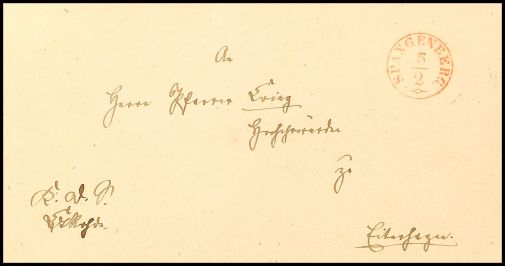 An
SPANGENBERG 5/2
Herrn Pfarrer Krieg
Hochehrwürden
zu
K. d. S.
Eiterhagen.